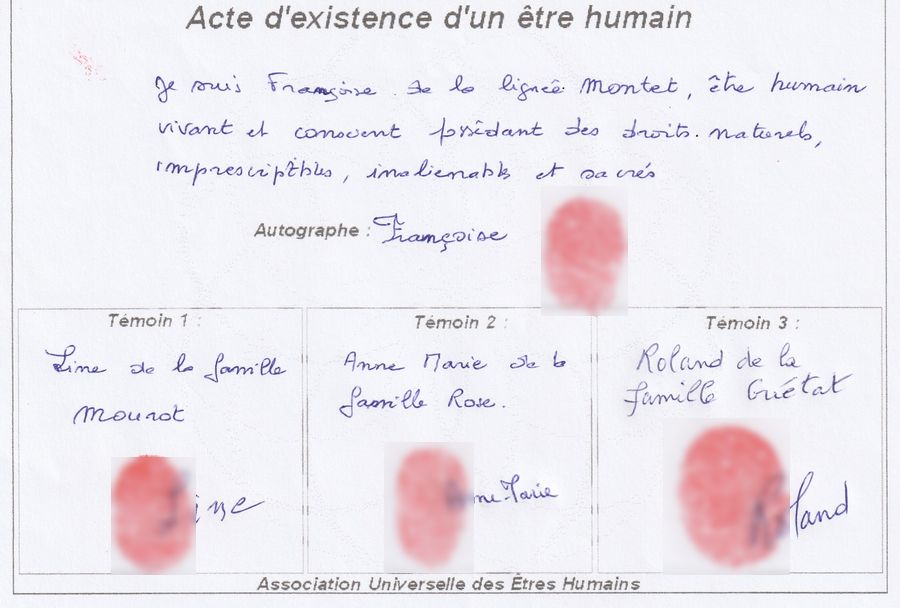 Acte d'existence d'un être humain
Je suis Françoise de la lignée Montet, être humain
vivant et conscient possédant des droits naturels,
imprescriptibles, inalienables et sacrés
Autographe : Françoise
Témoin 1 :
Line de la famille
Mourot
Line
Témoin 2 :
Anne Marie de la
famille Rose.
Anne-Marie
Témoin 3 :
Roland de la
famille Guétat
Roland
Association Universelle des Êtres Humains